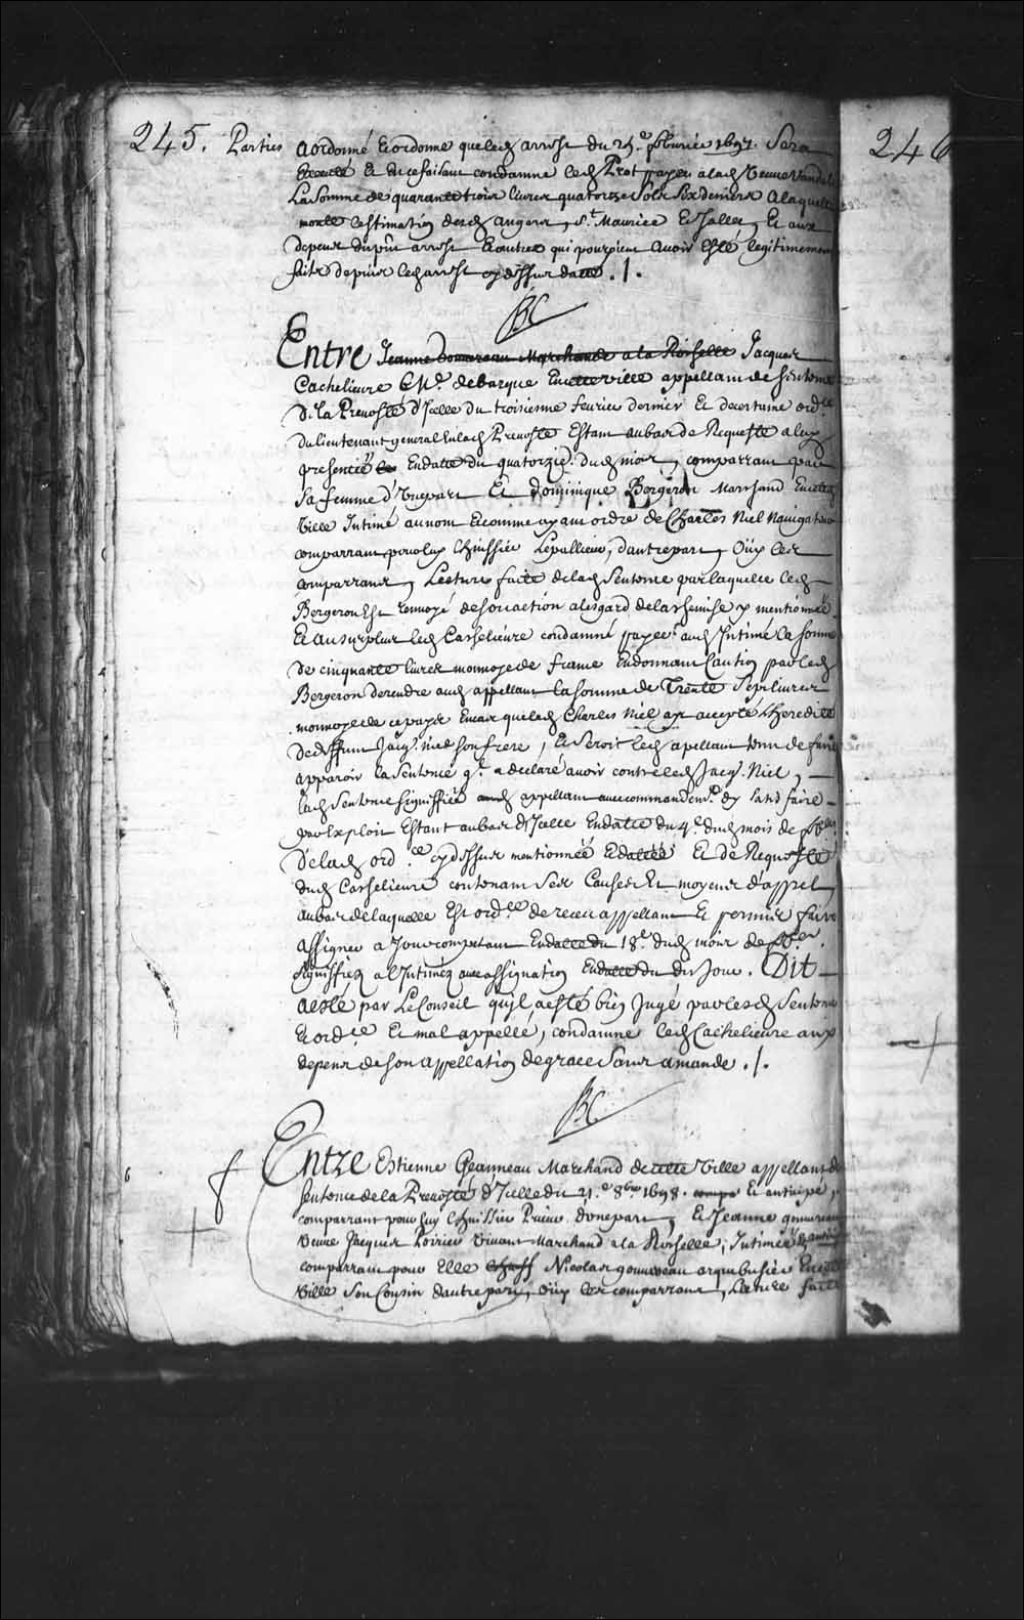 245. Parties a ordonné & ordonne que led. arrest du 25.e febvrier 1697. Sera
Executé Et En ce faisant condamne led. Prot payer a lad. Veuve
La Somme de quarante trois livres quatorze Sols Six deniers a laquelle
monte lestimation desd. Angers, St. Maurice Et Jallot, Et aux
depens du p'nt arrest & autres qui pourroient avoir Esté legitimement
faits depuis led. arrest cy dessus datté ./.
246
Entre Jeanne Marchande a la Rochelle Jacques
Cachelieure M.e de barque En cette ville appellant de Sentence
De La Prevosté d'Icelle du troisieme fevrier dernier Et de certaine ord.ce
du lieutenant general En lad. Prevosté Estant au bas de Requeste a luy
presentée En datte du quatorzie. dud. mois, comparrant par
Sa femme d'Unepart Et Dominique Bergeron Marchand En cette
Ville Intimé au nom & comme ayant ordre de Charles Niel Navigateur
comparrant pour luy Lhuissier Lepallieur, dautrepart, Oüy les
comparrans, Lecture faite de lad. Sentence par laquelle led.
Bergeron Est renvoyé de son action a lesgard de la y mentionnée
Et au surplus led. Casselieure condamné payer aud. Intimé la somme
De cinquante livres monnoye de france En donnant Caution par led.
Bergeron de rendre aud. appellant la somme de Trente Sept livres
monnoye de ce pays En cas que led. Charles Niel ayt accepté Lheredité
De deffunt Jacq. niel Son frere, Et Seroit led. apellant tenu de faire
apparoir la Sentence q.l a declaré avoir contre led. Jacq. Niel,
lad. Sentence Signiffiée aud. appellant avec commandem.t d'y satisfaire
par Exploit Estant au bas d'Icelle En datte du 4.e dud. mois de
De lad. ord.ce cy dessus mentionnée & dattée Et de Requeste
dud. Casselieure contenant Ses Causes Et moyens d'appel
au bas de laquelle Est ord.ce de receu appellant Et permis faire
assigner a Jour competant En datte du 18.e dud. mois de
signiffiée a l'Intimé avec assignation En datte du dit Jour. Dit
a esté par Le Conseil qu'il a esté bien Jugé par lesd. Sentence
& ord.ce Et mal appellé, condamne led. Cachelieure aux
depens de Son appellation de grace Sans amande ./.
Entre Estienne Geanneau Marchand de cette Ville appellant de
Sentence de la Prevosté d'Icelle du 21.e 8bre 1698. Et anticipé,
comparrant pour luy Lhuissier Prieur d'une part, Et Jeanne
Veuve Jacques Poirier vivant Marchand a la Rochelle, Intimée
comparrant pour Elle Nicolas gouvreau arquebusier En cette
Ville Son Cousin dautre part, Oüy les comparrans, Lecture faite